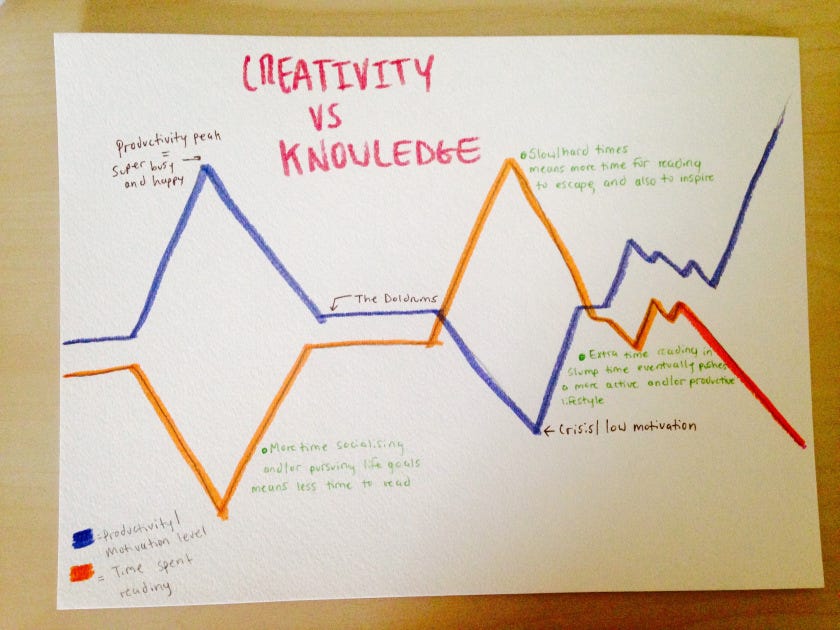 CREATIVITY
VS
KNOWLEDGE
Productivity peak
=
super busy
and happy
Slow/hard times
means more time for reading
to escape, and also to inspire
The Doldrums
Extra time reading in
slump time eventually pushes
a more active and/or productive
lifestyle
Crisis/ low motivation
More time socialising
and/or pursuing life goals
means less time to read
=Productivity/
Motivation level
= Time spent
reading